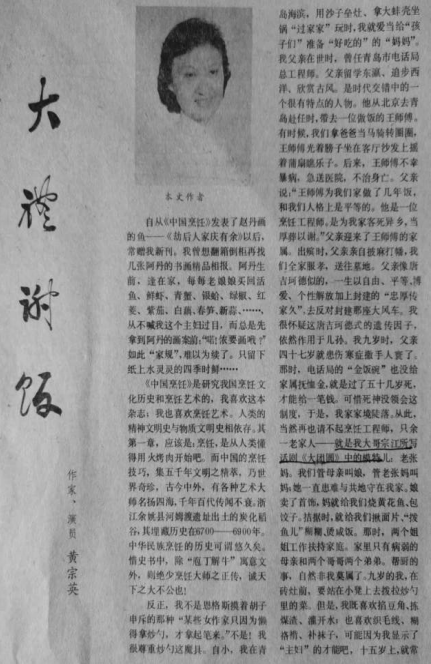 大礼谢饭
作家、演员 黄宗英
本文作者
自从《中国烹饪》发表了赵丹画
的鱼——《劫后人家庆有余》以后，
常赠我新刊。我曾想翻箱倒柜再找
几张阿丹的书画精品相报。阿丹生
前，逢在家，每每老娘娘买回活
鱼、鲜虾、青蟹、银蛤、绿椒、红
苋、紫茄、白藕、春笋、新蒜、……，
从不喊我这个主妇过目，而总是先
拿到阿丹的画案前：“唔！侬要画哦？”
如此“家规”，难以为续了。只留下
纸上水灵灵的四季时鲜……
《中国烹饪》是研究我国烹饪文
化历史和烹饪艺术的，我喜欢这本
杂志；我也喜欢烹饪艺术。人类的
精神文明史与物质文明史相依存。其
第一章，应该是：烹饪，是从人类懂
得用火烤肉开始吧。而中国的烹饪
技巧，集五千年文明之精萃，乃世
界奇珍，古今中外，有各种艺术大
师名扬四海，千年百代传闻不衰。浙
江余姚县河姆渡遗址出土的炭化稻
谷，其埋藏历史在6700——6900年。
中华民族烹饪的历史可谓悠久矣。
惜史书中，除“庖丁解牛”寓意文
外，则绝少烹饪大师之正传，诚天
下之大不公也！
反正，我不是恩格斯摸着胡子
申斥的那种“某些女作家只因为懒
得拿炒勺，才拿起笔来。”不是！我
很尊重炒勺这魔具。自小，我在青
岛海滨，用沙子垒灶、拿大蚌壳坐
锅“过家家”玩时，我就爱当给“孩
子们”准备“好吃的”的“妈妈”。
我父亲在世时，曾任青岛市电话局
总工程师。父亲留学东瀛、追步西
洋、欣赏古风。是时代交错中的一
个很有特点的人物。他从北京去青
岛赴任时，带去一位做饭的王师傅。
有时候，我们拿爸爸当马骑转圈圈，
王师傅光着膀子坐在客厅沙发上摇
着蒲扇瞧乐子。后来，王师傅不幸
暴病，急送医院，不治身亡。父亲
说：“王师傅为我们家做了几年饭，
和我们人格上是平等的。他是一位
烹饪工程师。是为我家客死异乡，当
厚葬以谢。”父亲迎来了王师傅的家
属。出殡时，父亲亲自披麻打幡，我
们全家服孝，送往墓地。父亲像唐
吉珂德似的，一生以自由、平等、博
爱、个性解放加上封建的“忠厚传
家久”，去反对封建那座大风车。我
很怀疑这唐吉珂德式的遗传因子，
依然作用于儿孙。我九岁时，父亲
四十七岁就患伤寒症撒手人寰了。
那时，电话局的“金饭碗”也没给
家属抚恤金，就是过了五十几岁死，
才能给一笔钱。可惜死神没领会这
制度，于是，我家家境陡落。从此，
当然再也请不起烹饪工程师，只余
一老家人——就是我大哥宗江所写
话剧《大团圆》中的模特儿：老张
妈。我们管母亲叫娘，管老张妈叫
妈；她一直患难与共地守在我家。娘
卖了首饰，妈就给我们烧黄花鱼、包
饺子。拮据时，就给我们揪面片、“拨
鱼儿”糊糊、烫咸饭。那时，两个姐
姐工作扶持家庭。家里只有病弱的
母亲和两个哥哥两个弟弟。帮厨的
事，自然非我莫属了。九岁的我，在
砖灶前，要站在小凳上去拨拉炒勺
里的菜。但是，我既喜欢掐豆角、拣
煤渣、灌开水；也喜欢织毛线，糊
袼褙、补袜子，可能因为我显示了
“主妇”的才能吧，十五岁上，就常